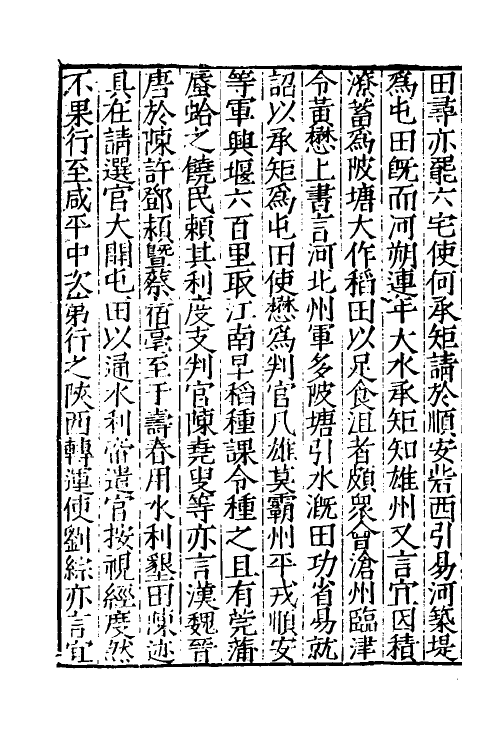 田尋亦罷六宅使何承矩請於順安砦西引易河築堤
爲屯田旣而河朔連年大水承矩知雄州又言宜因積
潦蓄爲陂塘大作稻田以足食沮者頗衆會滄州臨津
令黃懋上書言河北州軍多陂塘引水漑田功省易就
詔以承矩爲屯田使懋爲判官凡雄莫霸州平戎順安
等軍興堰六百里取江南早稻種課令種之且有莞蒲
蜃蛤之饒民賴其利度支判官陳堯叟等亦言漢魏晉
唐於陳許鄧頴暨蔡宿亳至于壽春用水利墾田陳迹
具在請選官大開屯田以通水利帝遣官按視經度然
不果行至咸平中次第行之陝西轉運使劉綜亦言宜